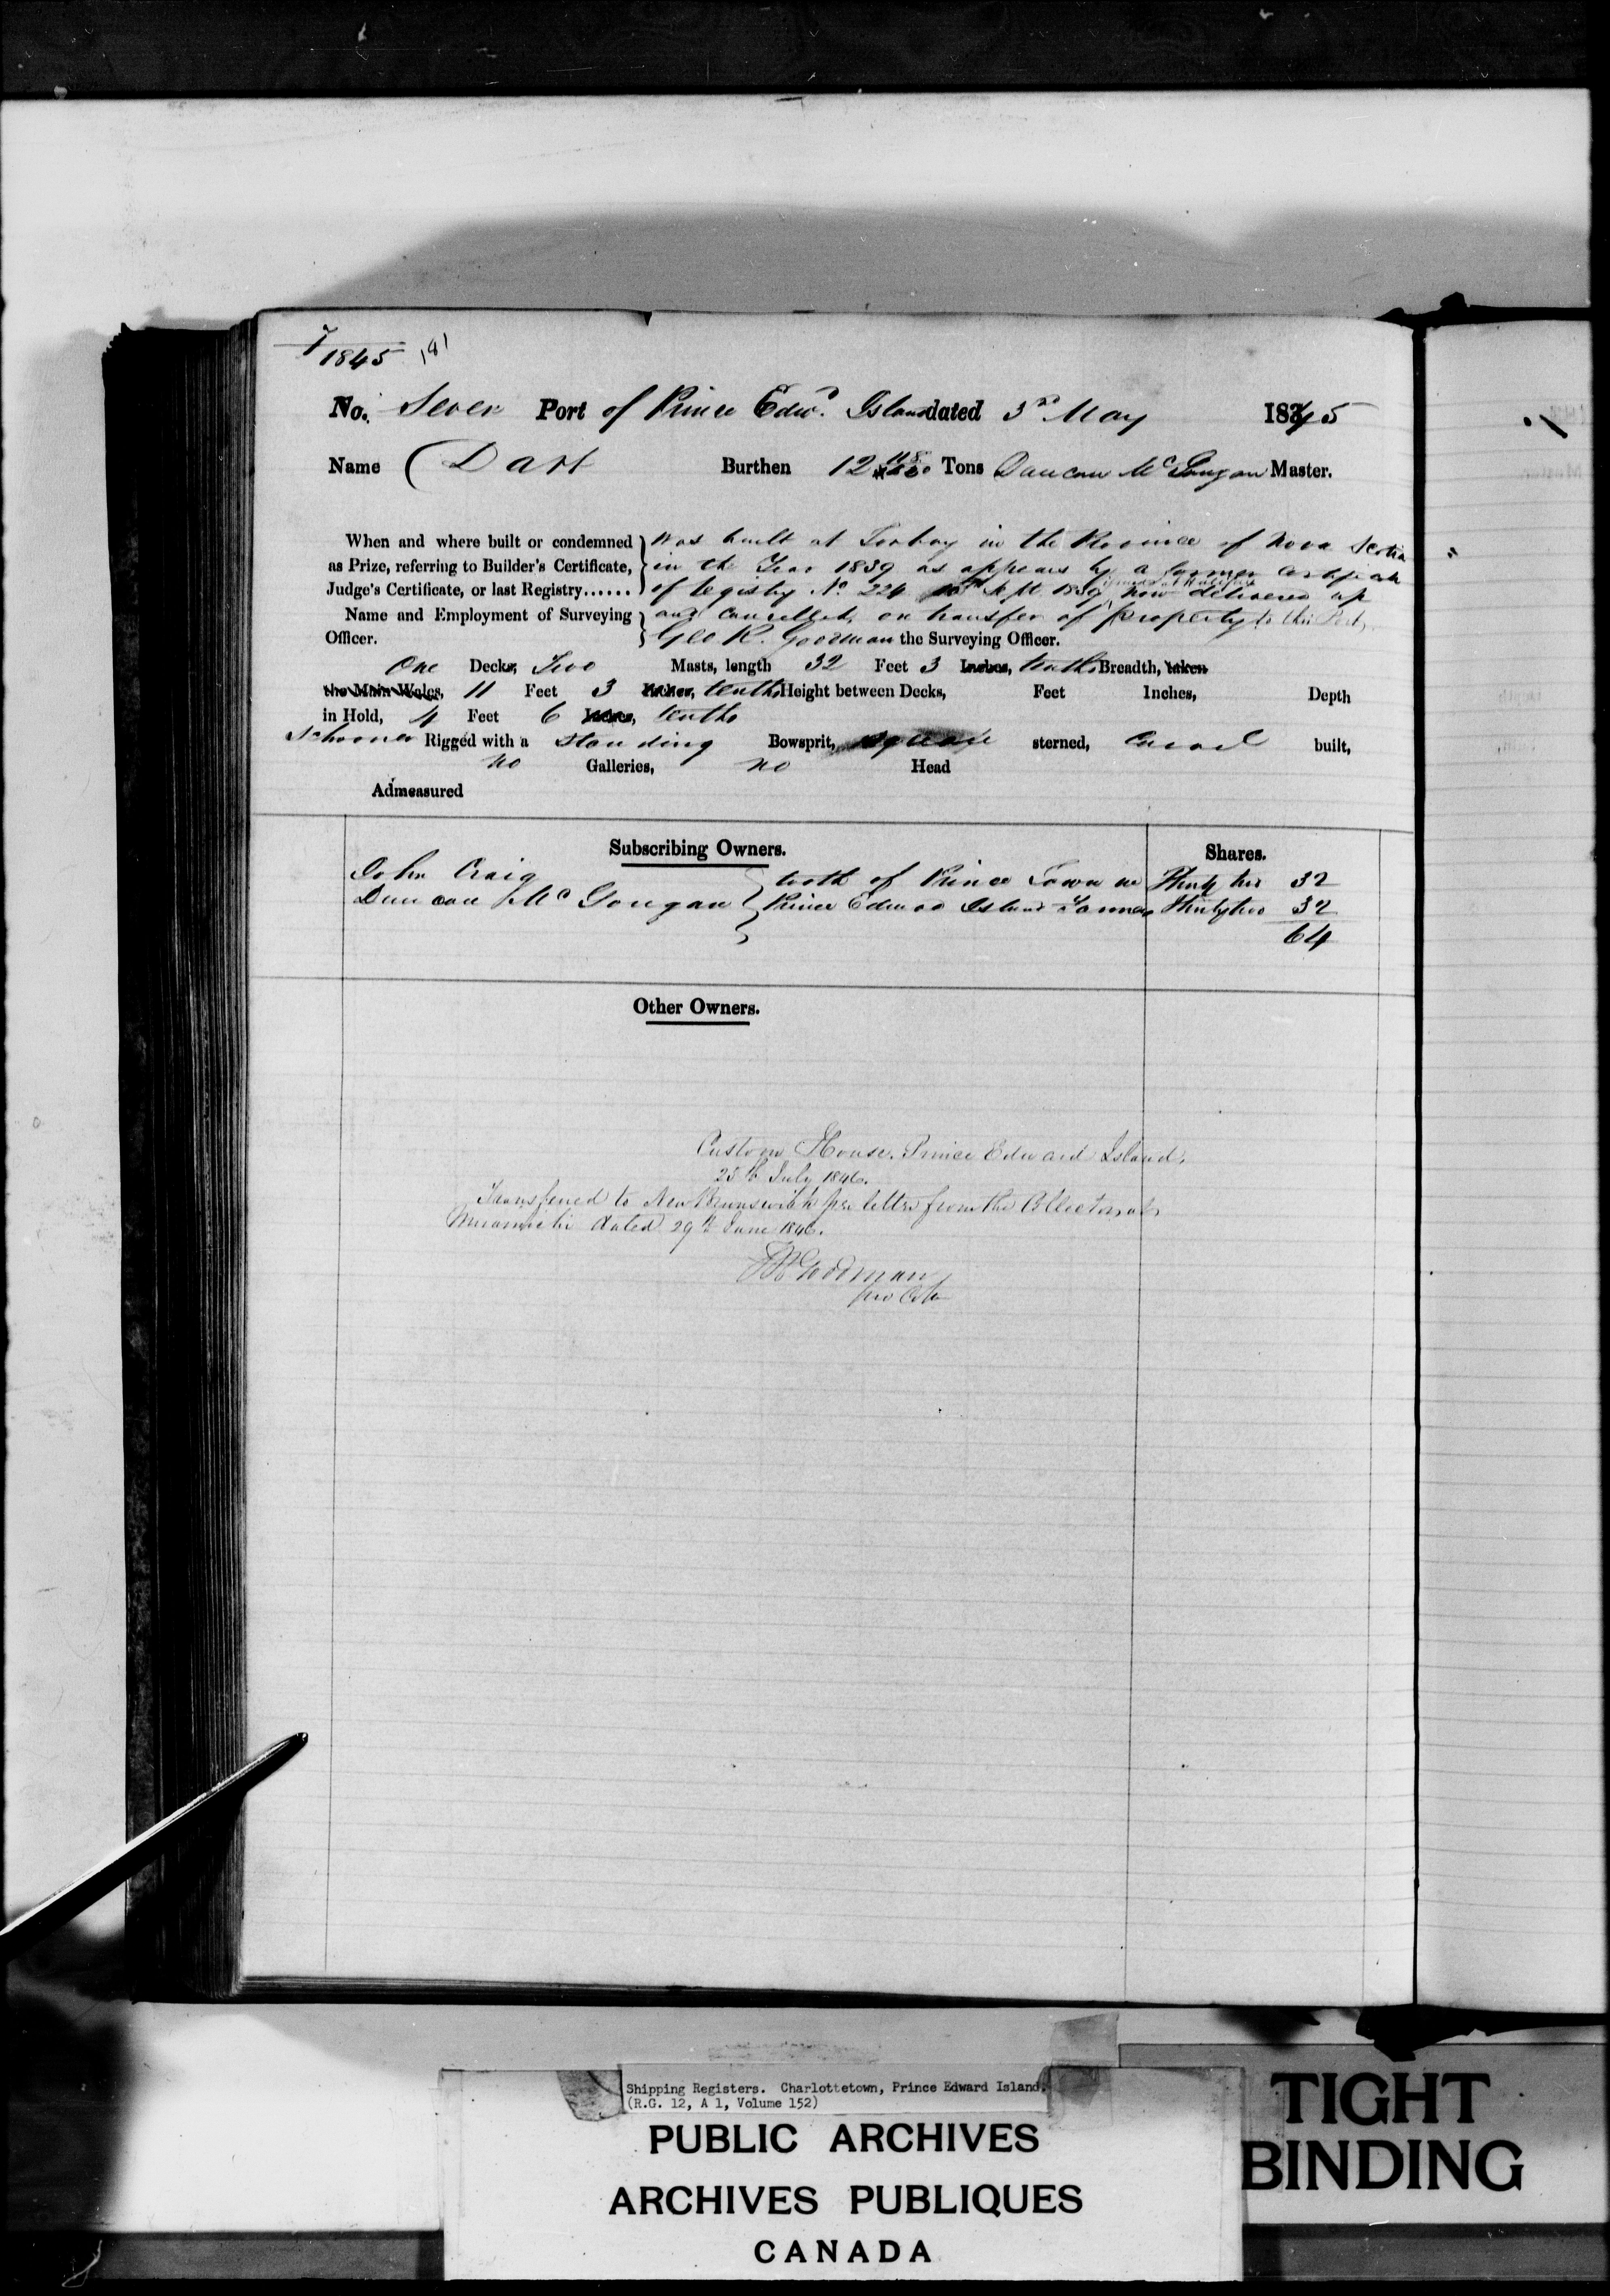 7
1845 181
No. Seven Port of Prince Edwd. Island dated 3rd May 1845
Name Dart Burthen 12 Tons Duncan McGougan Master.
When and where built or condemned was built at Torbay in the Province of Nova Scotia
as Prize, referring to Builder's Certificate, in the Year 1839 as appears by a former certificate
Judge's Certificate, or last Registry...... of Registry No. 224 Sept 1839 issued at Halifax now delivered up
Name and Employment of Surveying and cancelled, on transfer of property to this Port,
Officer. Geo R. Goodman the Surveying Officer.
One Decks, Two Masts, length 32 Feet 3 Inches, tenths Breadth, taken
the Main Wales, 11 Feet 3 Inches, tenths Height between Decks, Feet Inches, Depth
in Hold, 4 Feet 6 Inches, tenths
Schooner Rigged with a Standing Bowsprit, square sterned, Carvel built,
no Galleries, no Head
Admeasured
Subscribing Owners. Shares.
John Craig both of Prince Town in Thirty two 32
Duncan McGougan Prince Edward Island Farmers Thirty two 32
64
Other Owners.
Custom House, Prince Edward Island,
25th July 1846.
Transferred to New Brunswick per letter from the Collector at
Miramichi dated 29th June 1846.
Goodman
pro
Shipping Registers. Charlottetown, Prince Edward Island.
(R.G. 12, A 1, Volume 152)
PUBLIC ARCHIVES
ARCHIVES PUBLIQUES
CANADA
TIGHT
BINDING